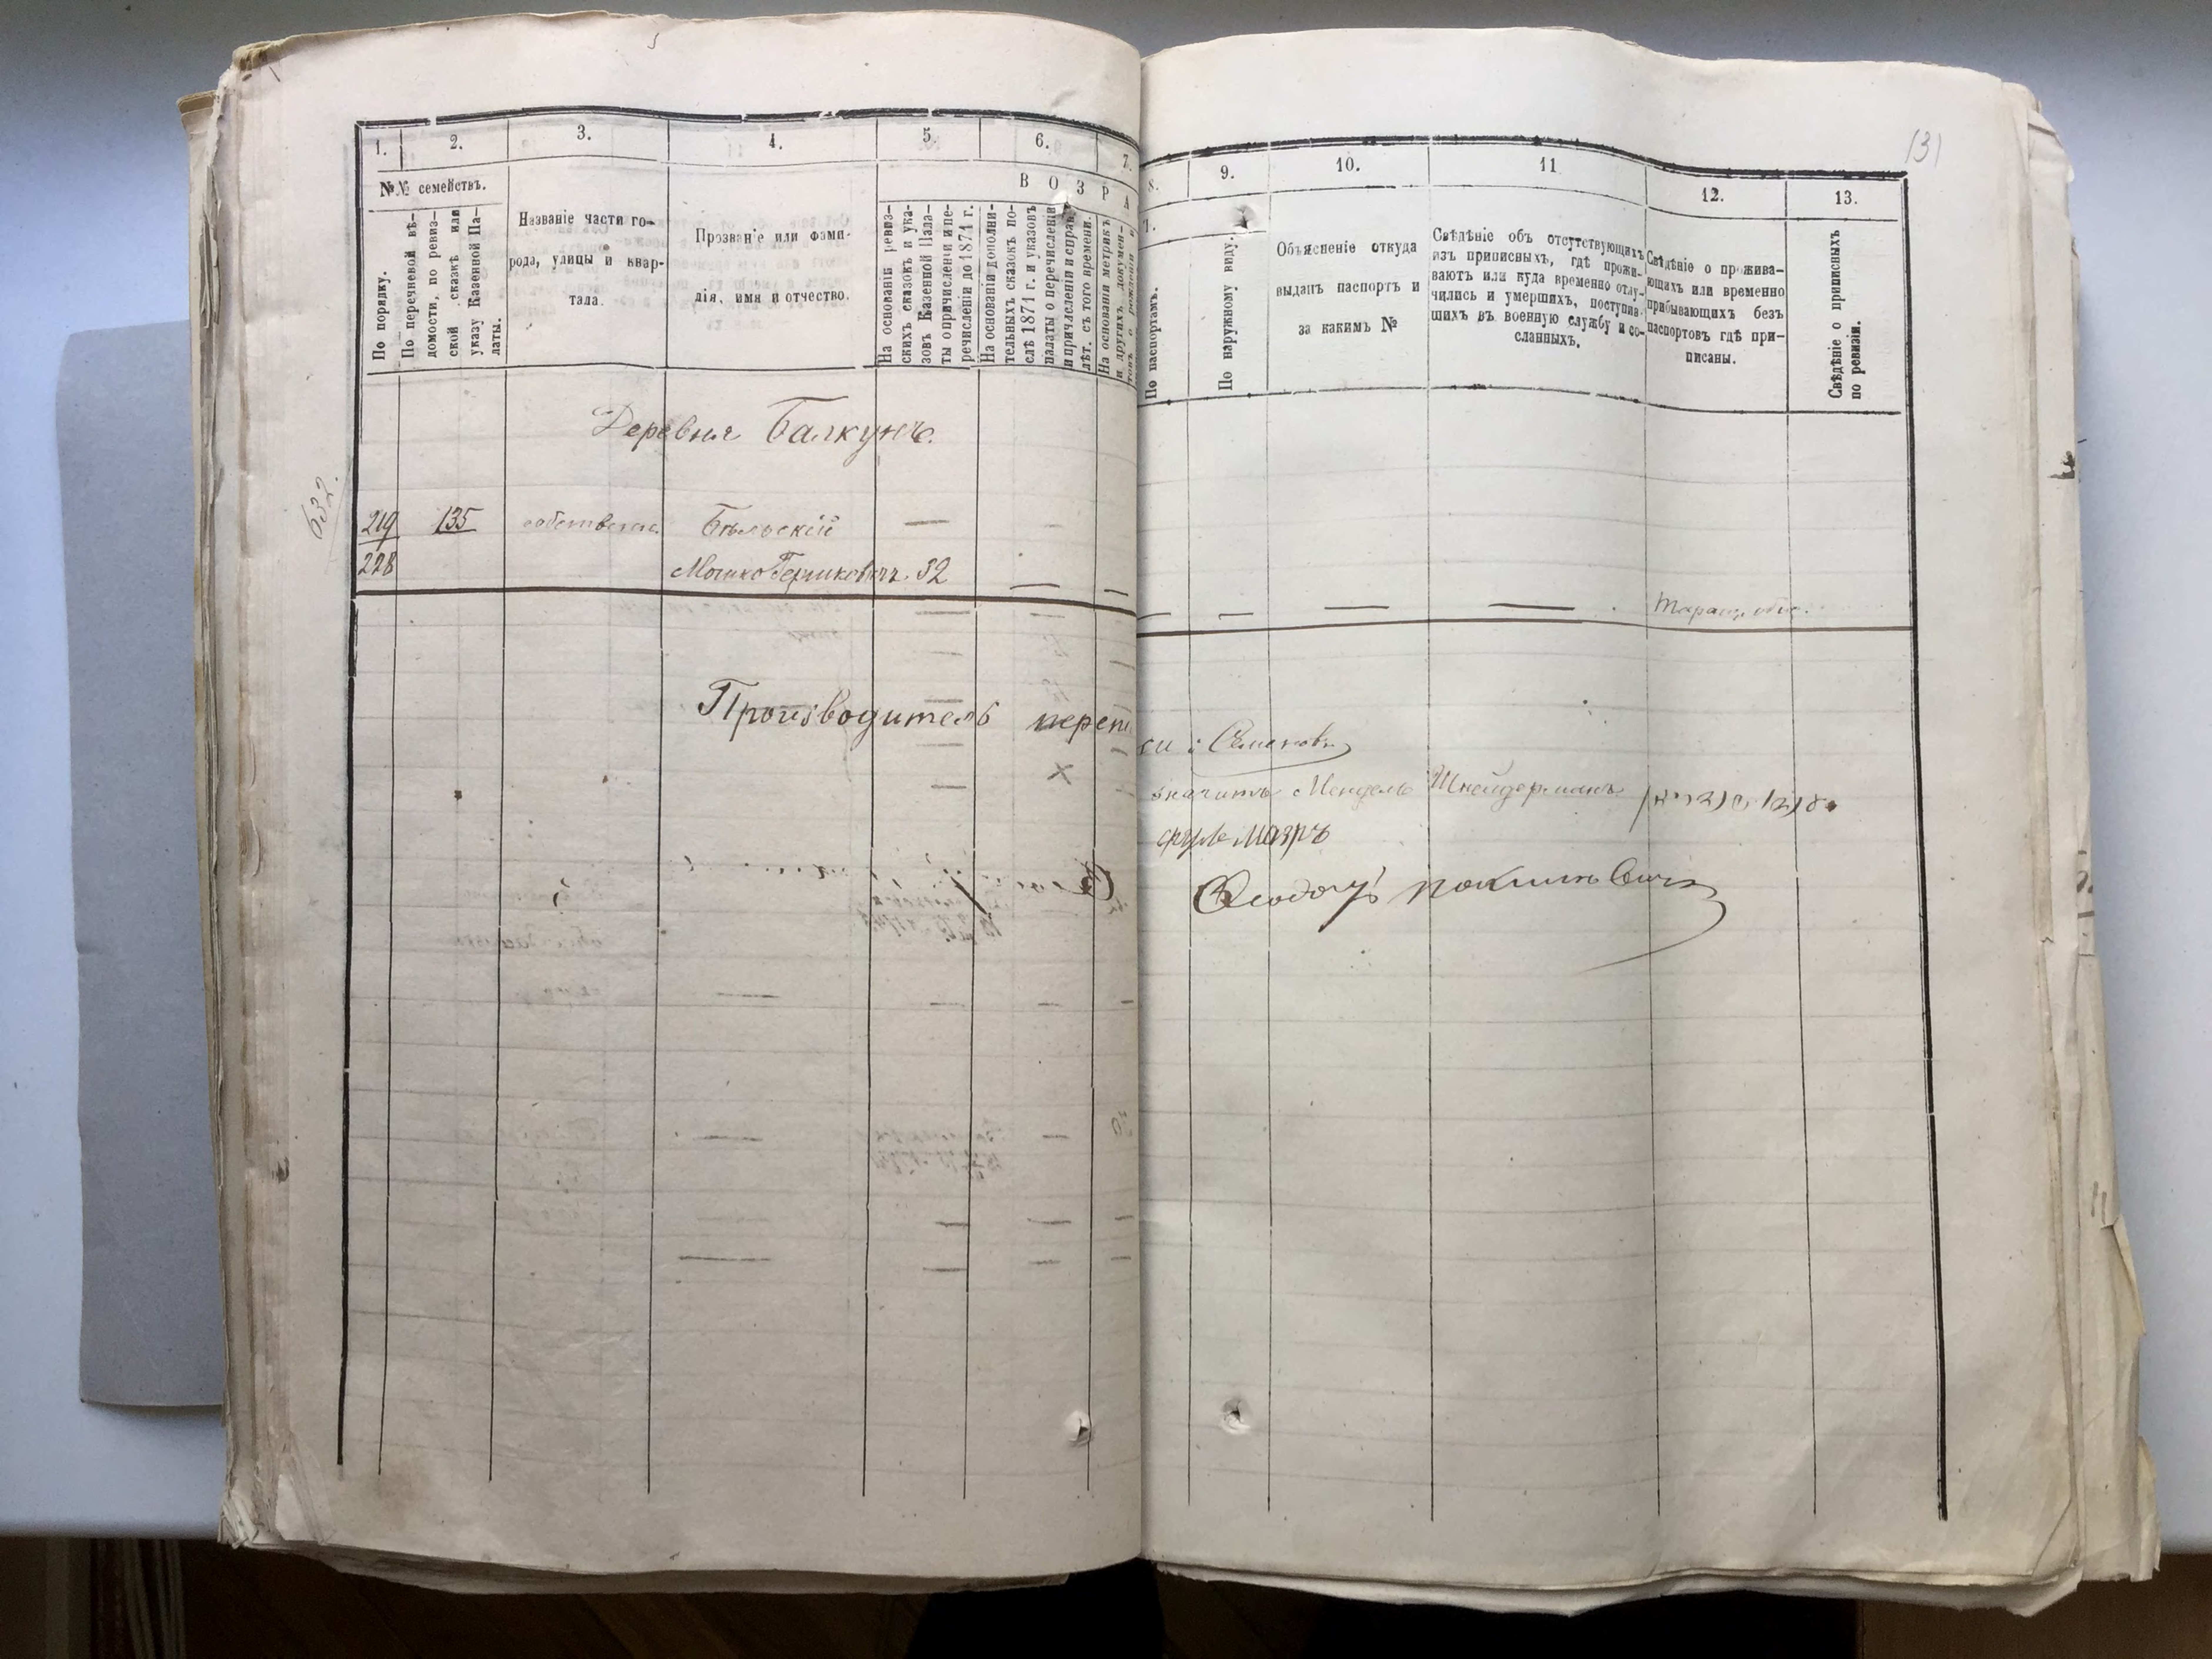 131
1. 2. 3. 4. 5. 6. 7.
№№ семействъ.
По порядку.
По перечневой вѣ-
домости, по ревиз-
ской сказкѣ или
указу Казенной Па-
латы.
Названіе части го-
рода, улицы и квар-
тала.
Прозваніе или фами-
лія, имя и отчество.
В О З Р А
На основаніи ревиз-
скихъ сказокъ и ука-
зовъ Казенной Пала-
ты о причисленіи и пе-
речисленіи до 1871 г.
На основаніи дополни-
тельныхъ сказокъ по-
слѣ 1871 г. и указовъ
палаты о перечисленіи
и причисленіи и справ.
лѣт. съ того времени.
На основаніи метрикъ
и другихъ докумен-
товъ о рожденіи и
Деревня Балкунъ.
632.
219 135 собствен. Бѣльскій —
228 Мошко Гершковичъ. 32 — —
Производитель переп
8. 9. 10. 11 12. 13.
Т.
По паспортамъ.
По наружному виду.
Объясненіе откуда
выданъ паспортъ и
за какимъ №
Свѣдѣніе объ отсутствующихъ
изъ приписныхъ, гдѣ прожи-
ваютъ или куда временно отлу-
чились и умершихъ, поступив-
шихъ въ военную службу и со-
сланныхъ.
Свѣдѣніе о прожива-
ющихъ или временно
прибывающихъ безъ
паспортовъ гдѣ при-
писаны.
Свѣдѣніе о приписныхъ
по ревизіи.
— — — — Таращ. обще.
си: Семеновъ
значитъ Мендель Шнейдерманъ